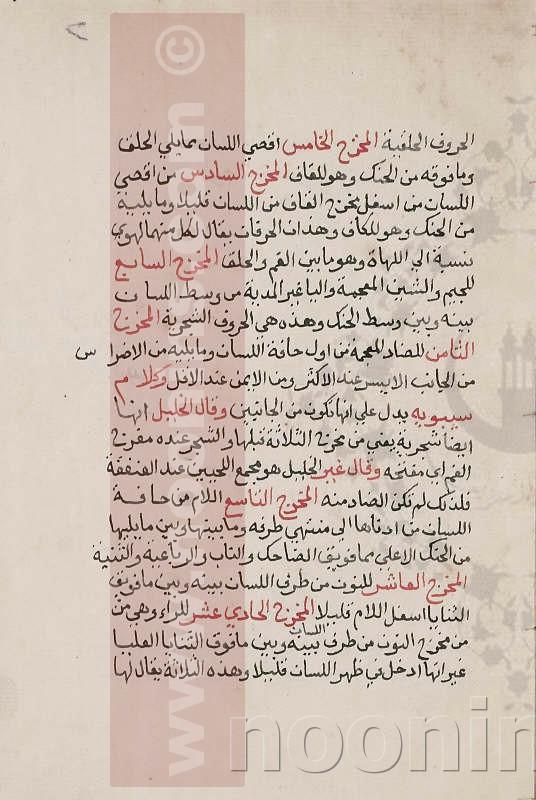 الحروف الحلقية المخرج الخامس اقصي اللسان بمايلي الحلق
ومافوقه من الحنك وهو للقاف المخرج السادس من اقصي
اللسان من اسفل مخرج القاف من اللسان قليلا ومايليه
من الحنك وهو للكاف وهذان الحرفان يقال لكل منهما لهوي
نسبة الي اللهاة وهو مابين الفم والحلق المخرج السابع
للجيم والشين المعجمة واليا غير المدية من وسط اللسان
بينه وبين وسط الحنك وهذه هي الحروف الشجرية المخرج
الثامن للضاد المعجمه من اول حافة اللسان ومايليه من الاضراس
من الجانب الايسر عند الاكثر ومن الايمن عند الاقل وكلام
سيبويه يدل علي انها تكون من الجانبين وقال الخليل انها
ايضا شجرية يعني من مخرج الثلاثة قبلها والشجر عنده مفرج
الفم اي مفتحه وقال غير الخليل هو مجمع اللحيين عند العنفقة
فلذلك لم تكن الضاد منه المخرج التاسع اللام من حافة
اللسان من ادناها الي منتهي طرفه ومابينها وبين مايليها
من الحنك الاعلي مما فويق الضاحك والناب والرباعية والثنية
المخرج العاشر للنون من طرف اللسان بينه وبين مافويق
الثنايا اسفل اللام قليلا المخرج الحادي عشر للراء وهي من
من مخرج النون من طرف اللسان بينه وبين مافوق الثنايا العليا
غير انها ادخل في ظهر اللسان قليلا وهذه الثلاثة يقال لها
noonin